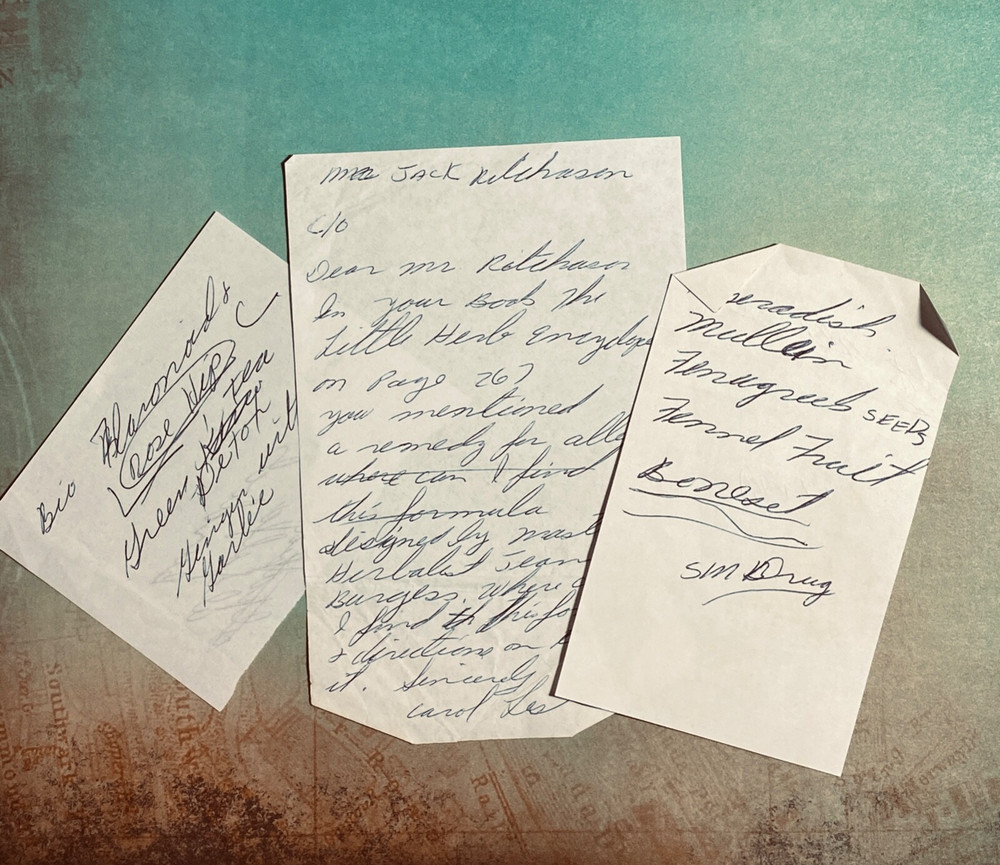 Bio Flavonoids
C
Rose Hip
Green tea
Detox
Ginger with
Garlic
Mr JACK Ritchason
C/O
Dear Mr. Ritchason
In your Book The
Little Herb Encyclope
on Page 267
you mentioned
a remedy for alle
where can I find
this formula
designed by mast
Herbalist Team
Burgess. where
I find this fo
& directions on
it. Sincerely
Carol Les
eradish
Mullein
Fenugreek SEEDS
Fennel Fruit
Boneset
SM Drug